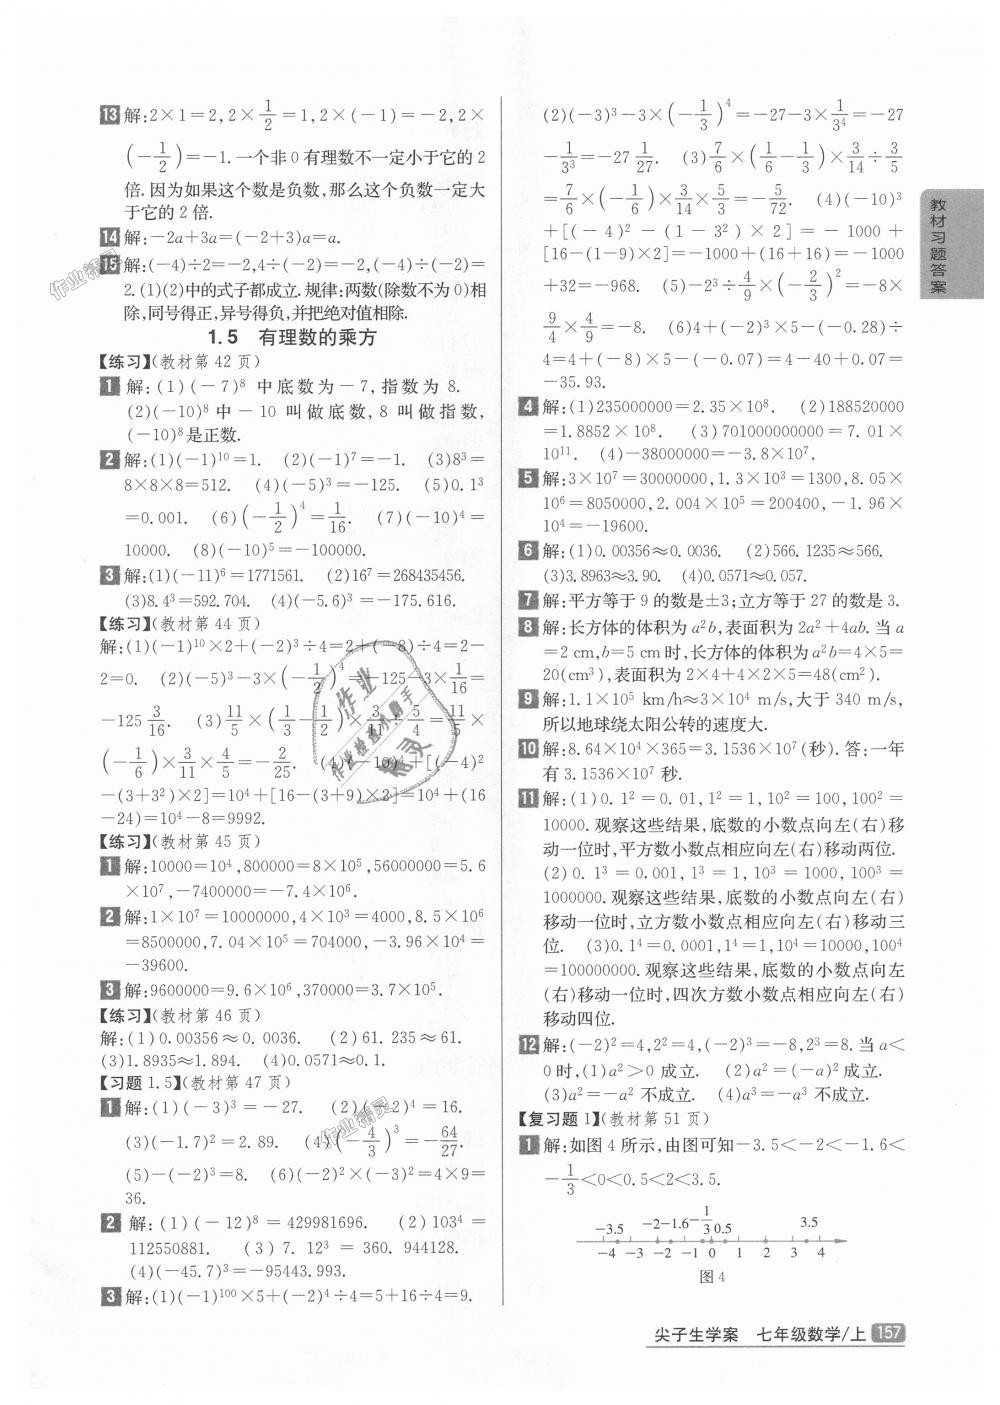 13 解:2×1=2,2×1/2=1,2×(-1)=-2,2×
(-1/2)=-1.一个非0有理数不一定小于它的2
倍.因为如果这个数是负数,那么这个负数一定大
于它的2倍.
14 解:-2a+3a=(-2+3)a=a.
15 解:(-4)÷2=-2,4÷(-2)=-2,(-4)÷(-2)=
2.(1)(2)中的式子都成立.规律:两数(除数不为0)相
除,同号得正,异号得负,并把绝对值相除.
1.5 有理数的乘方
【练习】(教材第42页)
1 解:(1)(-7)⁸ 中底数为-7,指数为8.
(2)(-10)⁸中-10叫做底数,8叫做指数,
(-10)⁸是正数.
2 解:(1)(-1)¹⁰=1. (2)(-1)⁷=-1. (3)8³=
8×8×8=512. (4)(-5)³=-125. (5)0.1³
=0.001. (6)(-1/2)⁴=1/16. (7)(-10)⁴=
10000. (8)(-10)⁵=-100000.
3 解:(1)(-11)⁶=1771561. (2)16⁷=268435456.
(3)8.4³=592.704. (4)(-5.6)³=-175.616.
【练习】(教材第44页)
解:(1)(-1)¹⁰×2+(-2)³÷4=2+(-8)÷4=2-
2=0. (2)(-5)³-3×(-1/2)⁴=-125-3×1/16=
-125 3/16. (3)11/5×(1/3-1/2)×3/11÷5/4=11/5×
(-1/6)×3/11×4/5=-2/25. (4)(-10)⁴+[(-4)²
-(3+3²)×2]=10⁴+[16-(3+9)×2]=10⁴+(16
-24)=10⁴-8=9992.
【练习】(教材第45页)
1 解:10000=10⁴,800000=8×10⁵,56000000=5.6
×10⁷,-7400000=-7.4×10⁶.
2 解:1×10⁷=10000000,4×10³=4000,8.5×10⁶
=8500000,7.04×10⁵=704000,-3.96×10⁴=
-39600.
3 解:9600000=9.6×10⁶,370000=3.7×10⁵.
【练习】(教材第46页)
解:(1)0.00356≈0.0036. (2)61.235≈61.
(3)1.8935≈1.894. (4)0.0571≈0.1.
【习题1.5】(教材第47页)
1 解:(1)(-3)³=-27. (2)(-2)⁴=16.
(3)(-1.7)²=2.89. (4)(-4/3)³=-64/27.
(5)-(-2)³=8. (6)(-2)²×(-3)²=4×9=
36.
2 解:(1)(-12)⁸=429981696. (2)103⁴=
112550881. (3)7.12³=360.944128.
(4)(-45.7)³=-95443.993.
3 解:(1)(-1)¹⁰⁰×5+(-2)⁴÷4=5+16÷4=9.
(2)(-3)³-3×(-1/3)⁴=-27-3×1/3⁴=-27
-1/3³=-27 1/27. (3)7/6×(1/6-1/3)×3/14÷3/5
=7/6×(-1/6)×3/14×5/3=-5/72. (4)(-10)³
+[(-4)²-(1-3²)×2]=-1000+
[16-(1-9)×2]=-1000+(16+16)=-1000
+32=-968. (5)-2³÷4/9×(-2/3)²=-8×
9/4×4/9=-8. (6)4+(-2)³×5-(-0.28)÷
4=4+(-8)×5-(-0.07)=4-40+0.07=
-35.93.
4 解:(1)235000000=2.35×10⁸. (2)188520000
=1.8852×10⁸. (3)701000000000=7.01×
10¹¹. (4)-38000000=-3.8×10⁷.
5 解:3×10⁷=30000000,1.3×10³=1300,8.05×
10⁶=8050000,2.004×10⁵=200400,-1.96×
10⁴=-19600.
6 解:(1)0.00356≈0.0036. (2)566.1235≈566.
(3)3.8963≈3.90. (4)0.0571≈0.057.
7 解:平方等于9的数是±3;立方等于27的数是3.
8 解:长方体的体积为a²b,表面积为2a²+4ab.当a
=2 cm,b=5 cm时,长方体的体积为a²b=4×5=
20(cm³),表面积为2×4+4×2×5=48(cm²).
9 解:1.1×10⁵ km/h≈3×10⁴ m/s,大于340 m/s,
所以地球绕太阳公转的速度大.
10 解:8.64×10⁴×365=3.1536×10⁷(秒).答:一年
有3.1536×10⁷秒.
11 解:(1)0.1²=0.01,1²=1,10²=100,100²=
10000.观察这些结果,底数的小数点向左(右)移
动一位时,平方数小数点相应向左(右)移动两位.
(2)0.1³=0.001,1³=1,10³=1000,100³=
1000000.观察这些结果,底数的小数点向左(右)
移动一位时,立方数小数点相应向左(右)移动三
位. (3)0.1⁴=0.0001,1⁴=1,10⁴=10000,100⁴
=100000000.观察这些结果,底数的小数点向左
(右)移动一位时,四次方数小数点相应向左(右)
移动四位.
12 解:(-2)²=4,2²=4,(-2)³=-8,2³=8.当a<
0时,(1)a²>0成立. (2)a²=(-a)²成立.
(3)a²=-a²不成立. (4)a³=-a³不成立.
【复习题1】(教材第51页)
1 解:如图4所示,由图可知-3.5<-2<-1.6<
-1/3<0<0.5<2<3.5.
-3.5 -2-1.6-1/3 0.5 3.5
-4 -3 -2 -1 0 1 2 3 4
图4
教材习题答案
尖子生学案 七年级数学/上 157
作业精灵
作业精灵
作业检查小助手
作业
精灵